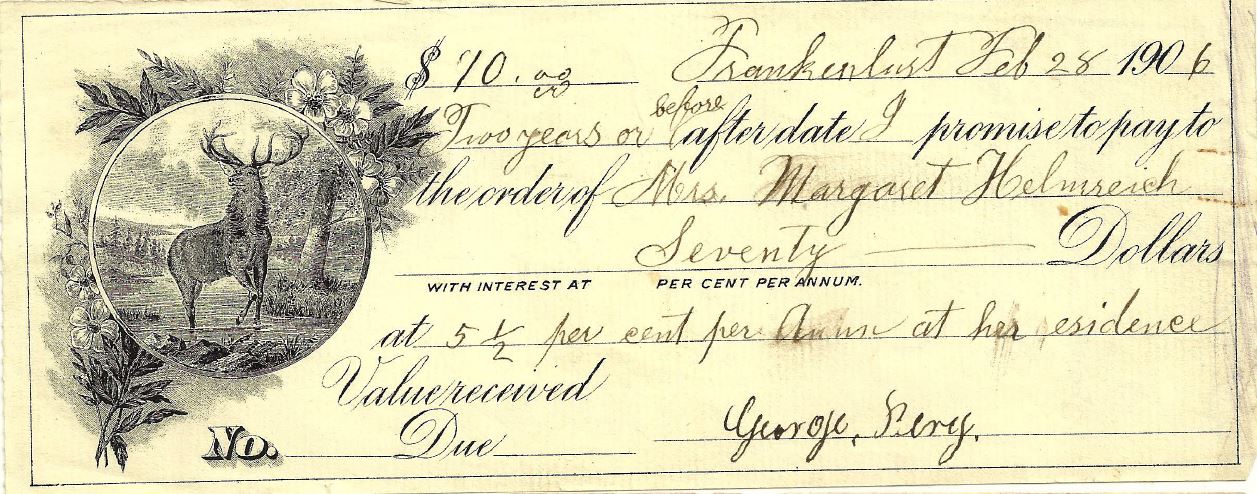 $ 70.00 Frankenlust Feb 28 1906
Two years or before after date I promise to pay to
the order of Mrs. Margaret Helmreich
Seventy Dollars
WITH INTEREST AT PER CENT PER ANNUM.
at 5 1/2 per cent per Anum at her esidence
Value received
George, Berg.
No. Due